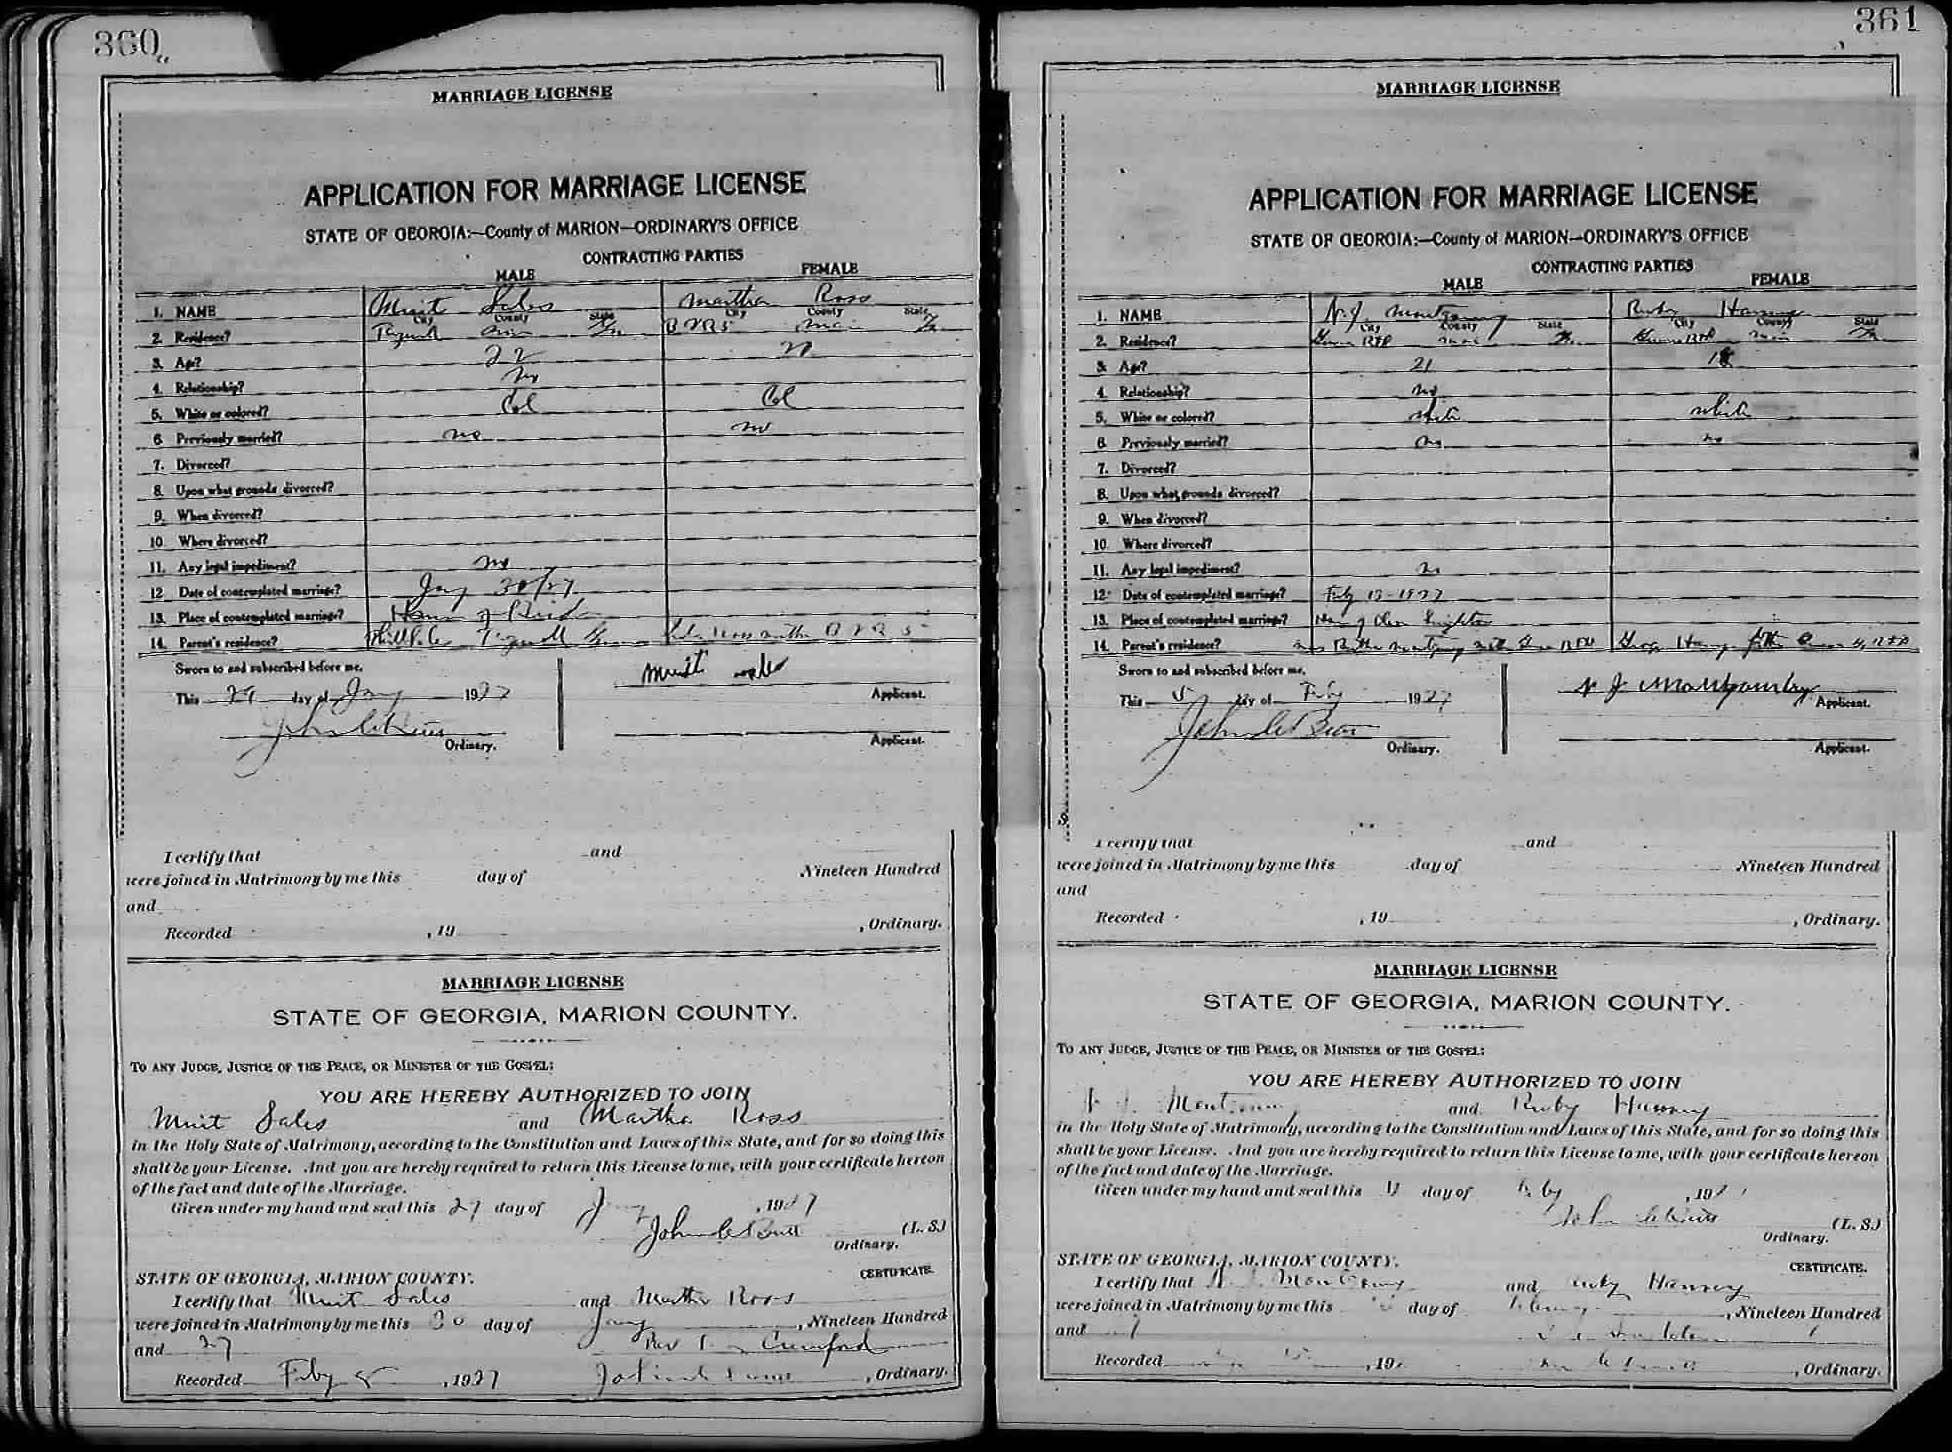 360
MARRIAGE LICENSE
APPLICATION FOR MARRIAGE LICENSE
STATE OF GEORGIA:—County of MARION—ORDINARY'S OFFICE
CONTRACTING PARTIES
MALE FEMALE
1. NAME Muit Sales Martha Ross
City County State City County State
2. Residence? Ga
3. Age? 22 20
4. Relationship? No
5. White or colored? Col Col
6 Previously married? no no
7. Divorced?
8. Upon what grounds divorced?
9. When divorced?
10. Where divorced?
11. Any legal impediment? no
12 Date of contemplated marriage? Jany 30/27
13. Place of contemplated marriage? of
14. Parent's residence?
Sworn to and subscribed before me.
This 29 day of Jany 1927
Ordinary.
Muit Sales
Applicant.
Applicant.
I certify that and
were joined in Matrimony by me this day of Nineteen Hundred
and
Recorded , 19 , Ordinary.
MARRIAGE LICENSE
STATE OF GEORGIA, MARION COUNTY.
TO ANY JUDGE, JUSTICE OF THE PEACE, OR MINISTER OF THE GOSPEL:
YOU ARE HEREBY AUTHORIZED TO JOIN
Muit Sales and Martha Ross
in the Holy State of Matrimony, according to the Constitution and Laws of this State, and for so doing this
shall be your License. And you are hereby required to return this License to me, with your certificate hereon
of the fact and date of the Marriage.
Given under my hand and seal this 29 day of Jany , 1927
John C Butt (L. S.)
Ordinary.
STATE OF GEORGIA, MARION COUNTY. CERTIFICATE.
I certify that Muit Sales and Martha Ross
were joined in Matrimony by me this 30 day of Jany , Nineteen Hundred
and 27 Rev Crawford
Recorded Feby 5 , 1927 , Ordinary.
361
MARRIAGE LICENSE
APPLICATION FOR MARRIAGE LICENSE
STATE OF GEORGIA:—County of MARION—ORDINARY'S OFFICE
CONTRACTING PARTIES
MALE FEMALE
1. NAME N. J. Montgomery Ruby Harvey
City County State City County State
2. Residence? RFD Ga RFD Ga
3. Age? 21 18
4. Relationship? no
5. White or colored? white white
6. Previously married? no no
7. Divorced?
8. Upon what grounds divorced?
9. When divorced?
10. Where divorced?
11. Any legal impediment? no
12. Date of contemplated marriage? Feby 13-1927
13. Place of contemplated marriage?
14. Parent's residence? Montgomery RFD Harvey RFD
Sworn to and subscribed before me.
This day of Feby 1927
John C Butt
Ordinary.
N J Montgomery
Applicant.
Applicant.
I certify that and
were joined in Matrimony by me this day of Nineteen Hundred
and
Recorded , 19 , Ordinary.
MARRIAGE LICENSE
STATE OF GEORGIA, MARION COUNTY.
TO ANY JUDGE, JUSTICE OF THE PEACE, OR MINISTER OF THE GOSPEL:
YOU ARE HEREBY AUTHORIZED TO JOIN
N. J. Montgomery and Ruby Harvey
in the Holy State of Matrimony, according to the Constitution and Laws of this State, and for so doing this
shall be your License. And you are hereby required to return this License to me, with your certificate hereon
of the fact and date of the Marriage.
Given under my hand and seal this day of Feby , 192
John C Butt (L. S.)
Ordinary.
STATE OF GEORGIA, MARION COUNTY. CERTIFICATE.
I certify that N. J. Montgomery and Ruby Harvey
were joined in Matrimony by me this day of , Nineteen Hundred
and
Recorded , 19 , Ordinary.